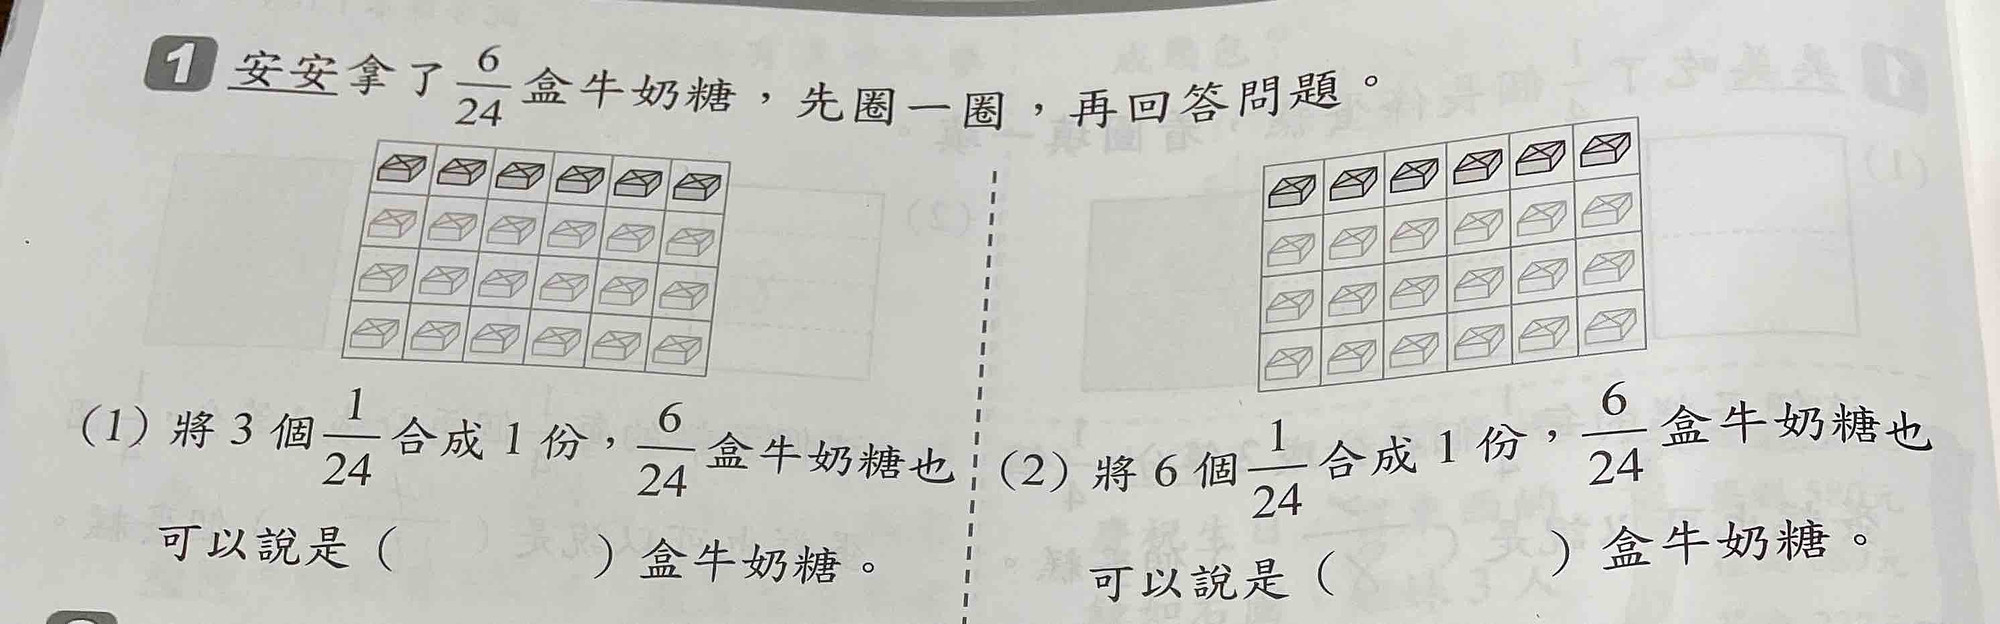 1 安安拿了6/24盒牛奶糖，先圈一圈，再回答問題。
(1) 將 3 個1/24合成 1 份，6/24盒牛奶糖也
可以說是（　　　）盒牛奶糖。
(2) 將 6 個1/24合成 1 份，6/24盒牛奶糖也
可以說是（　　　）盒牛奶糖。